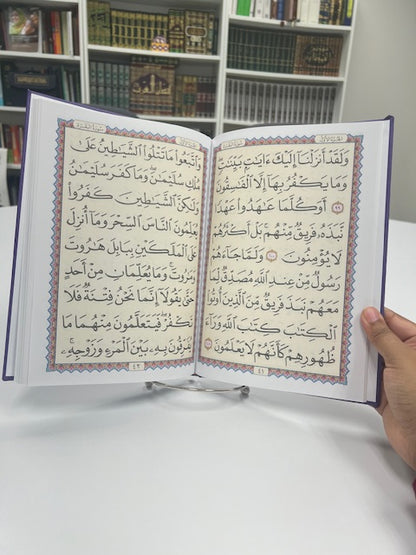 وَلَقَدْ أَنزَلْنَآ إِلَيْكَ ءَايَٰتٍۭ بَيِّنَٰتٍۖ
وَمَا يَكْفُرُ بِهَآ إِلَّا ٱلْفَٰسِقُونَ
٩٩ أَوَكُلَّمَا عَٰهَدُوا۟ عَهْدًا
نَّبَذَهُۥ فَرِيقٌ مِّنْهُمۚ بَلْ أَكْثَرُهُمْ
لَا يُؤْمِنُونَ ١٠٠ وَلَمَّا جَآءَهُمْ
رَسُولٌ مِّنْ عِندِ ٱللَّهِ مُصَدِّقٌ لِّمَا
مَعَهُمْ نَبَذَ فَرِيقٌ مِّنَ ٱلَّذِينَ أُوتُوا۟
ٱلْكِتَٰبَ كِتَٰبَ ٱللَّهِ وَرَآءَ
ظُهُورِهِمْ كَأَنَّهُمْ لَا يَعْلَمُونَ ١٠١
٤١
وَٱتَّبَعُوا۟ مَا تَتْلُوا۟ ٱلشَّيَٰطِينُ عَلَىٰ
مُلْكِ سُلَيْمَٰنَۖ وَمَا كَفَرَ سُلَيْمَٰنُ
وَلَٰكِنَّ ٱلشَّيَٰطِينَ كَفَرُوا۟
يُعَلِّمُونَ ٱلنَّاسَ ٱلسِّحْرَ وَمَآ أُنزِلَ
عَلَى ٱلْمَلَكَيْنِ بِبَابِلَ هَٰرُوتَ
وَمَٰرُوتَۚ وَمَا يُعَلِّمَانِ مِنْ أَحَدٍ
حَتَّىٰ يَقُولَآ إِنَّمَا نَحْنُ فِتْنَةٌ فَلَا
تَكْفُرْۖ فَيَتَعَلَّمُونَ مِنْهُمَا مَا
يُفَرِّقُونَ بِهِۦ بَيْنَ ٱلْمَرْءِ وَزَوْجِهِۦۚ
٤٢